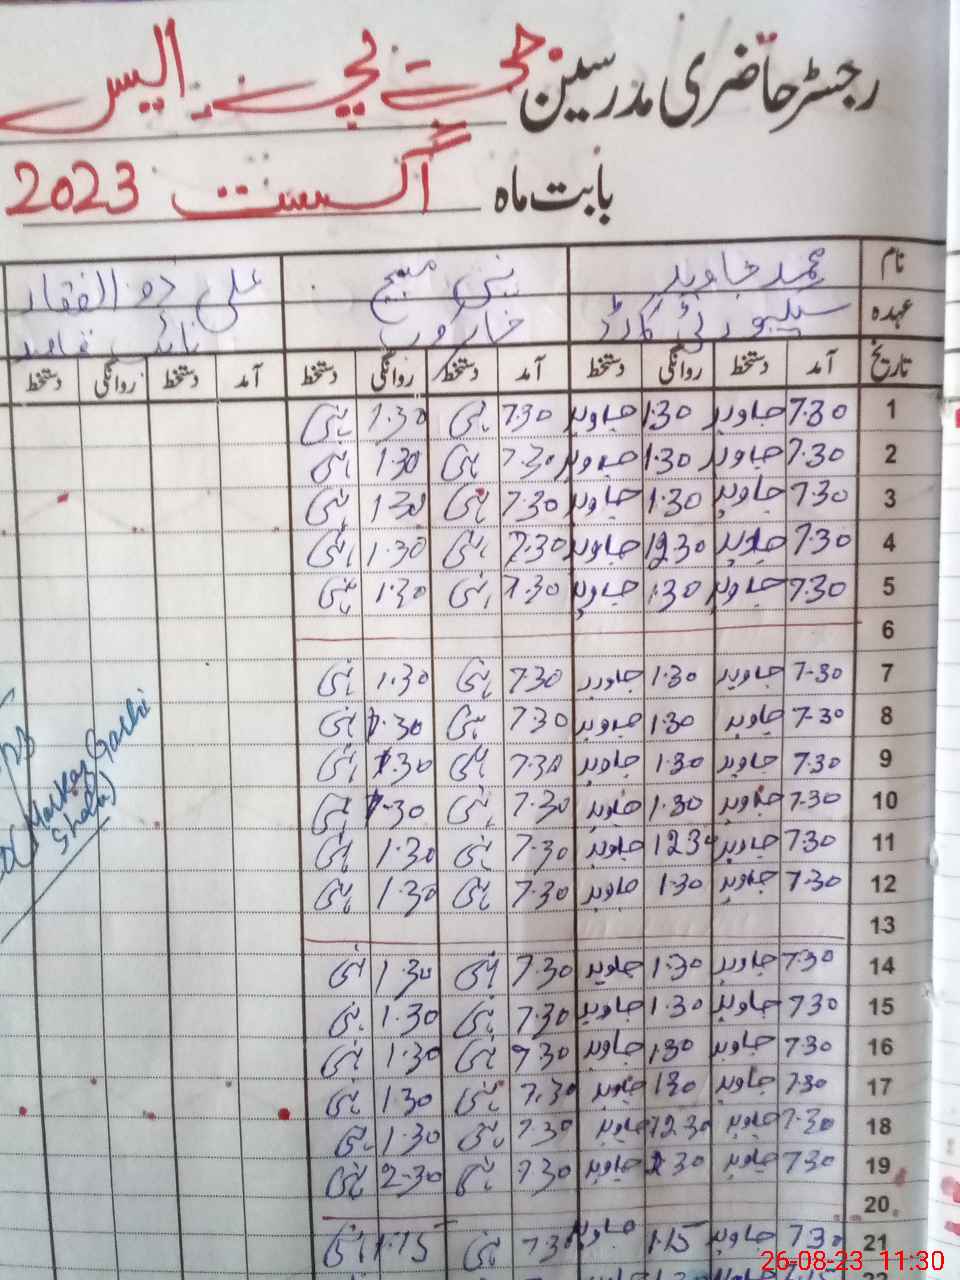 رجسٹر حاضری مدرسین
بابت ماہ اگست 2023
نام محمد جاوید نبی مسیح علی ذوالفقار
عہدہ سیکیورٹی گارڈ خاکروب نائب قاصد
تاریخ آمد دستخط روانگی دستخط آمد دستخط روانگی دستخط آمد دستخط روانگی دستخط
1 7.30 جاوید 1.30 جاوید 7.30 نبی 1.30 نبی
2 7.30 جاوید 1.30 جاوید 7.30 نبی 1.30 نبی
3 7.30 جاوید 1.30 جاوید 7.30 نبی 1.30 نبی
4 7.30 جاوید 12.30 جاوید 7.30 نبی 1.30 نبی
5 7.30 جاوید 1.30 جاوید 7.30 نبی 1.30 نبی
6
7 7-30 جاوید 1.30 جاوید 7.30 نبی 1.30 نبی
8 7-30 جاوید 1.30 جاوید 7.30 نبی 1.30 نبی
9 7.30 جاوید 1.30 جاوید 7.30 نبی 1.30 نبی
10 7.30 جاوید 1.30 جاوید 7.30 نبی 1-30 نبی
11 7.30 جاوید 1230 جاوید 7.30 نبی 1.30 نبی
12 7.30 جاوید 1.30 جاوید 7.30 نبی 1.30 نبی
13
14 7.30 جاوید 1.30 جاوید 7.30 نبی 1.30 نبی
15 7.30 جاوید 1.30 جاوید 7.30 نبی 1.30 نبی
16 7.30 جاوید 1.30 جاوید 9.30 نبی 1.30 نبی
17 7.30 جاوید 1.30 جاوید 7.30 نبی 1.30 نبی
18 7.30 جاوید 12.30 جاوید 7.30 نبی 1.30 نبی
19 7.30 جاوید 2.30 جاوید 7.30 نبی 2-30 نبی
20
21 7.30 جاوید 1.15 جاوید 7.30 نبی 1.15 نبی
Markaz Garhi
Shah)
26-08-23 11:30